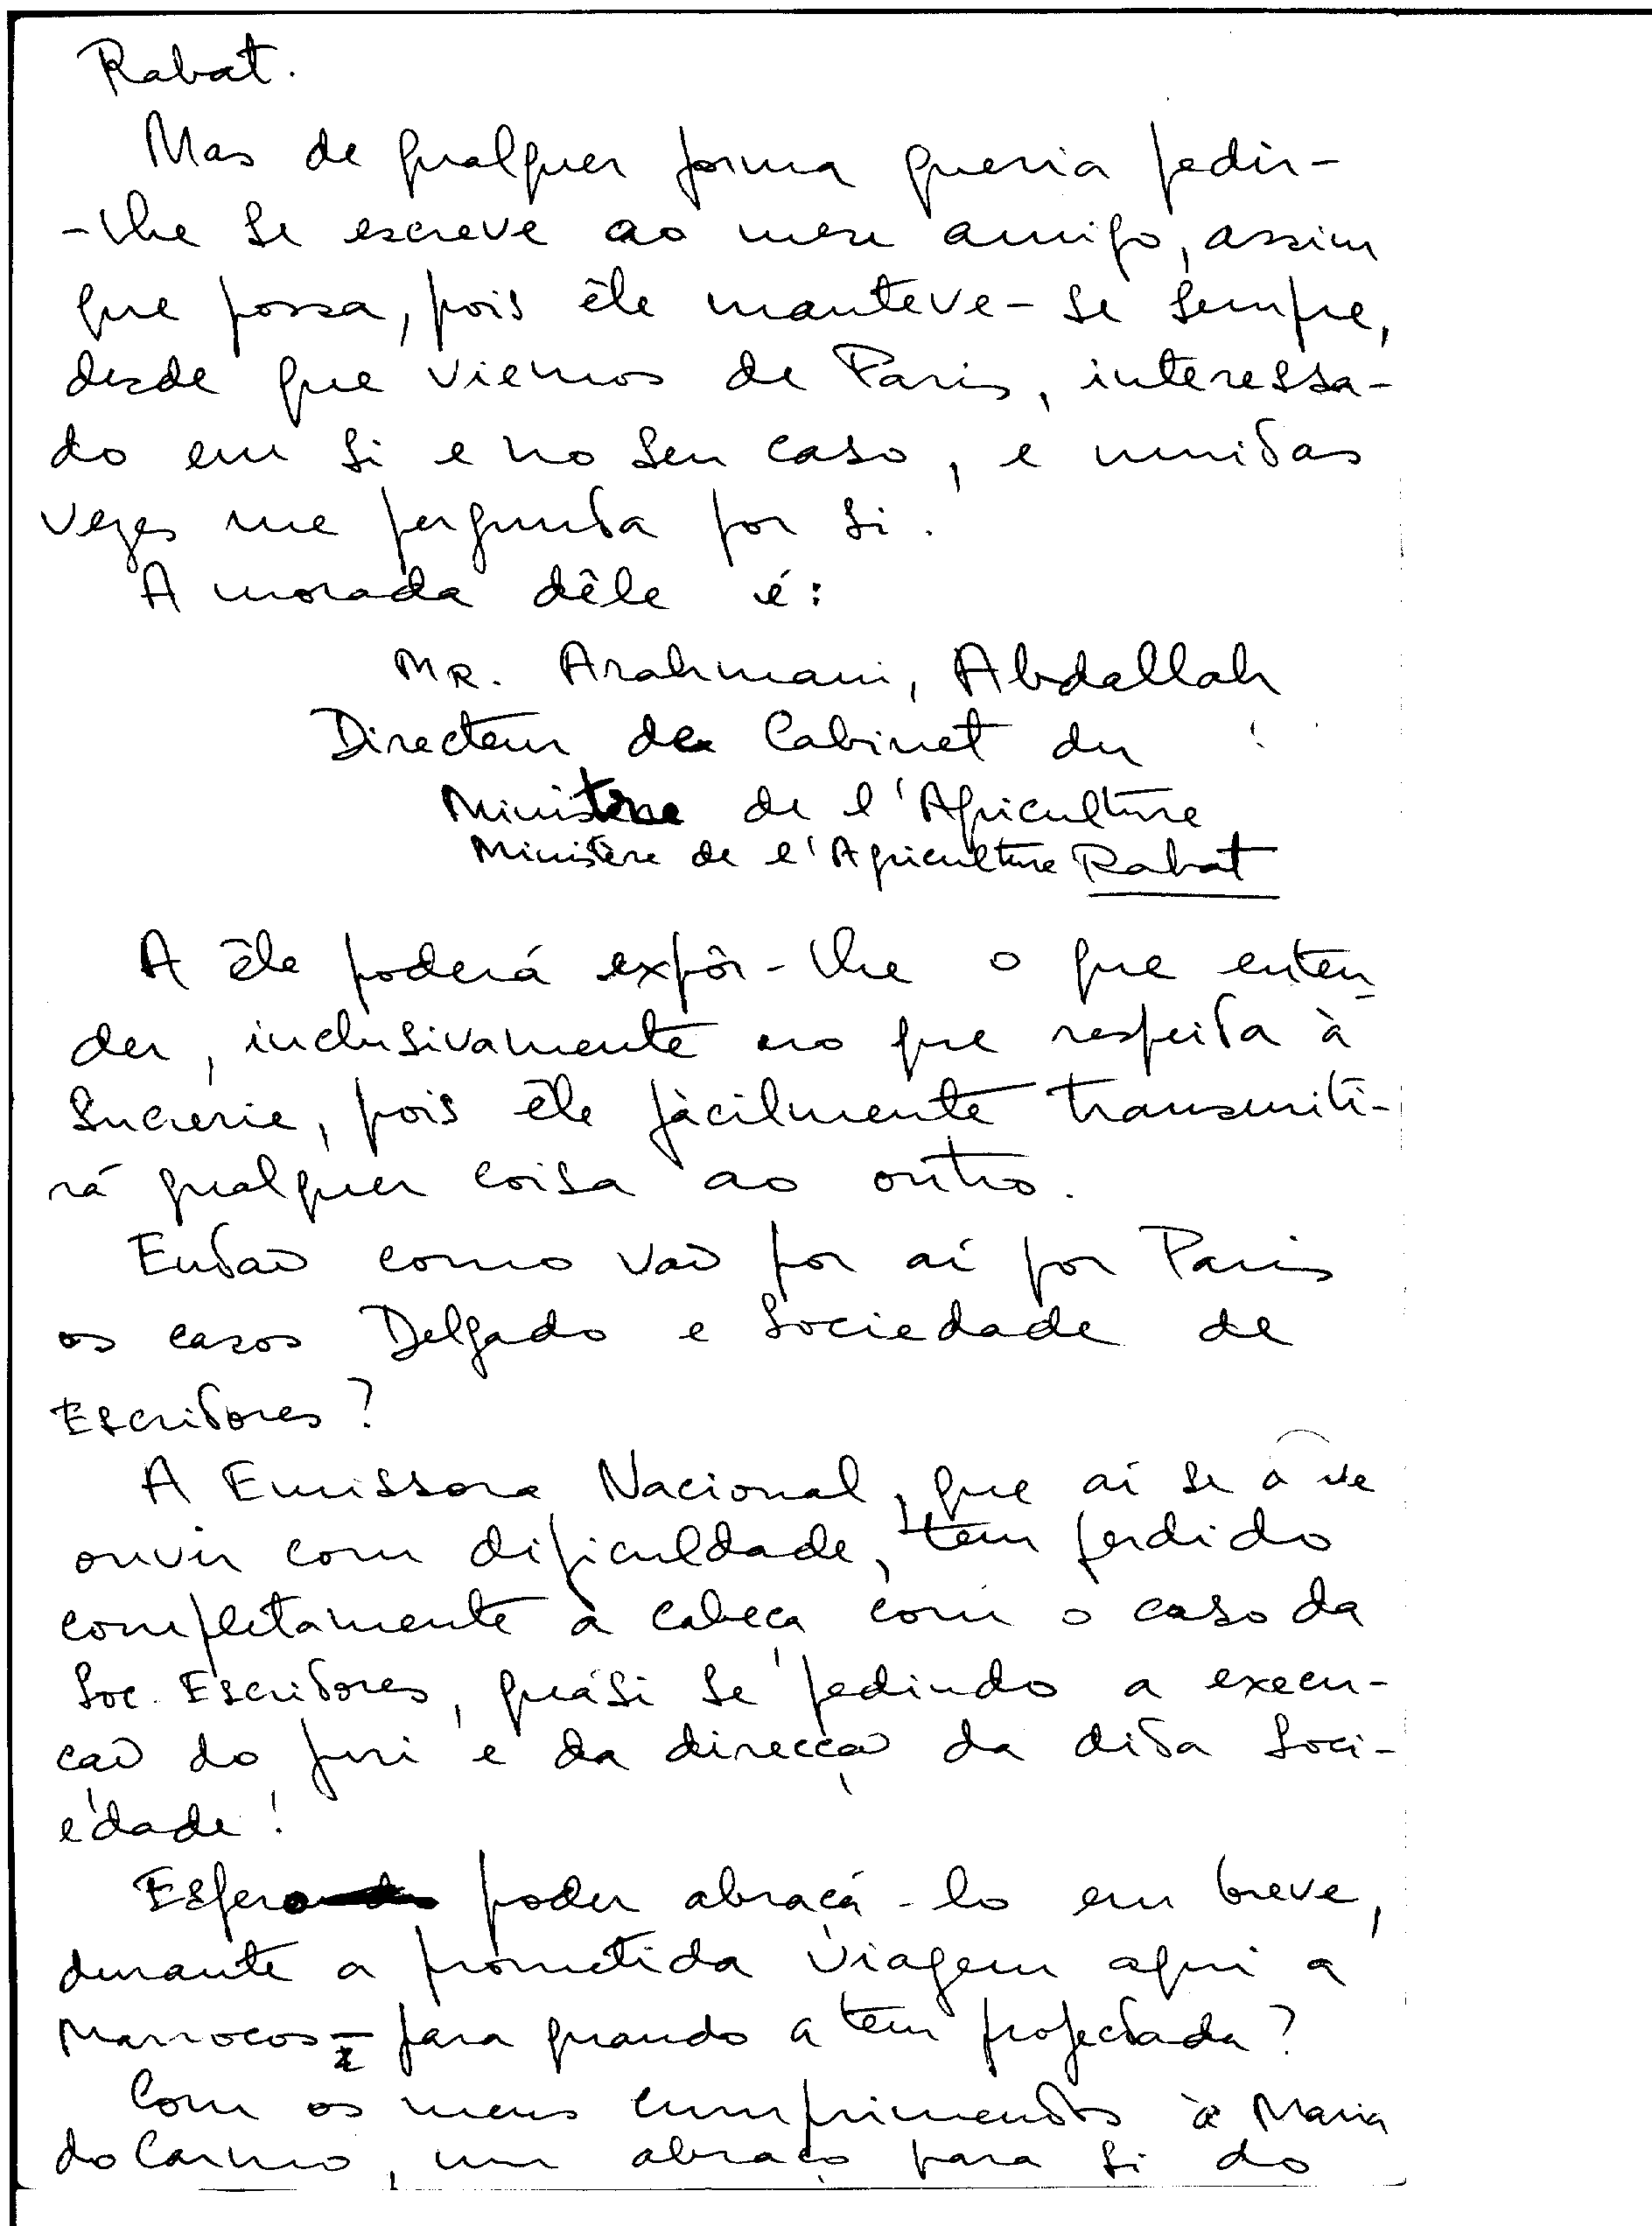 Rabat.
Mas de qualquer forma queria pedir-
-lhe se escreve ao meu amigo, assim
que possa, pois êle manteve-se sempre,
desde que viemos de Paris, interessa-
do em si e no seu caso, e muitas
vezes me pergunta por si.
A morada dêle é:
MR. Arahmani, Abdallah
Directeur de Cabinet du
Ministère de l'Agriculture
Ministère de l'Agriculture Rabat
A êle poderá expôr-lhe o que enten-
der, inclusivamente no que respeita à
Sucrerie, pois êle fàcilmente transmiti-
rá qualquer coisa ao outro.
Então como vão por aí por Paris
os casos Delgado e Sociedade de
Escritores?
A Emissora Nacional, que aí se
ouvir com dificuldade, tem perdido
completamente a cabeça com o caso da
Soc. Escritores, quási se pedindo a execu-
ção do juri e da direcção da dita Soci-
edade!
Espero poder abraçá-lo em breve,
durante a prometida viagem aqui a
Marrocos - para quando a tem projectada?
Com os meus cumprimentos à Maria
do Carmo, um abraço para si do